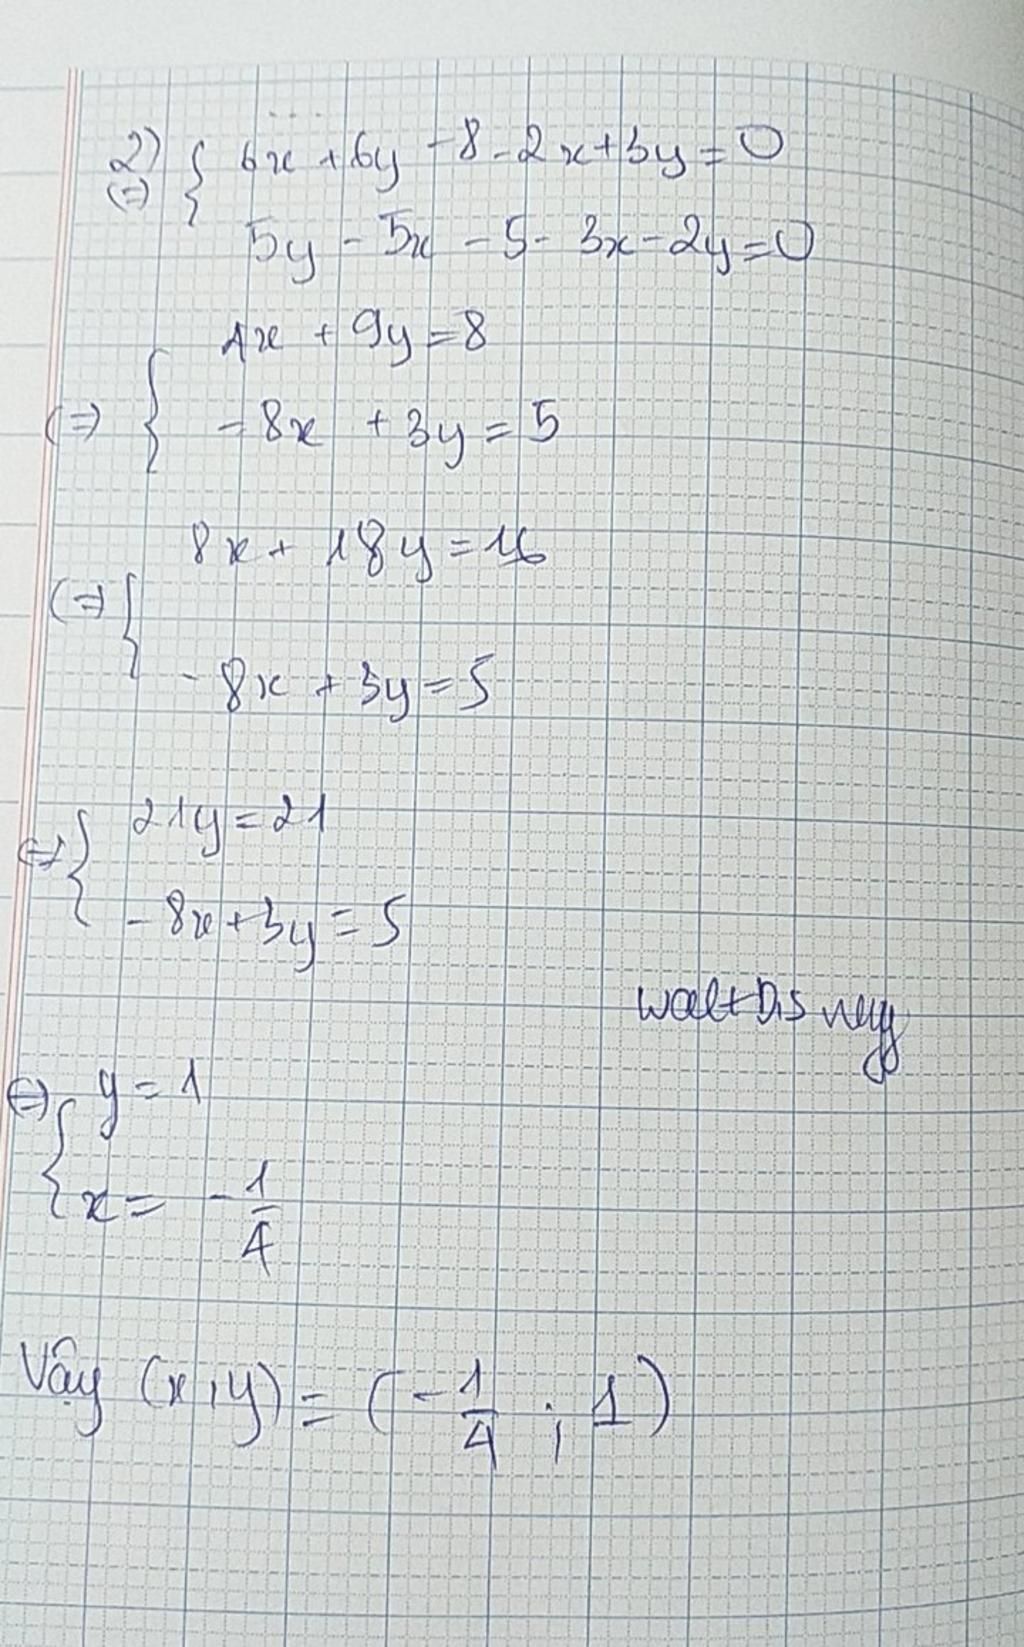 2) { 6x + 6y - 8 - 2x + 3y = 0
(=) 5y - 5x - 5 - 3x - 2y = 0
4x + 9y = 8
(=) { - 8x + 3y = 5
8x + 18y = 16
(=) {
- 8x + 3y = 5
(=) { 21y = 21
- 8x + 3y = 5
walt Disney
(=) { y = 1
x = - 1/4
Vậy (x, y) = ( - 1/4 ; 1 )